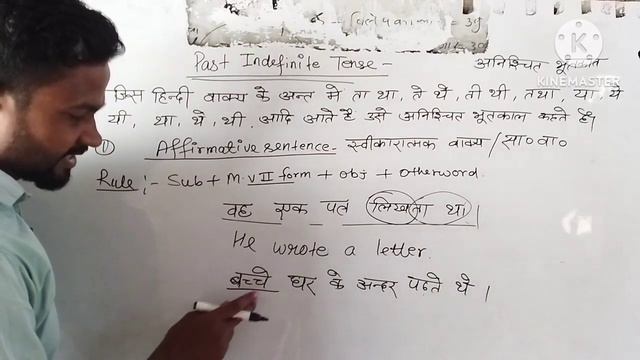 Past Indefinite Tense - अनिश्चित भूतकाल
जिस हिन्दी वाक्य के अन्त मे ता था, ते थे, ती थी, तथा, या ये
यी, था, थे, थी आदि आते हैं उसे अनिश्चित भूतकाल कहते है।
Affirmative sentence - स्वीकारात्मक वाक्य / सा० वा०
Rule :- Sub + M.V II form + obj + otherword.
वह एक पत्र लिखता था।
He wrote a letter.
बच्चे घर के अन्दर पढते थे।
KINEMASTER